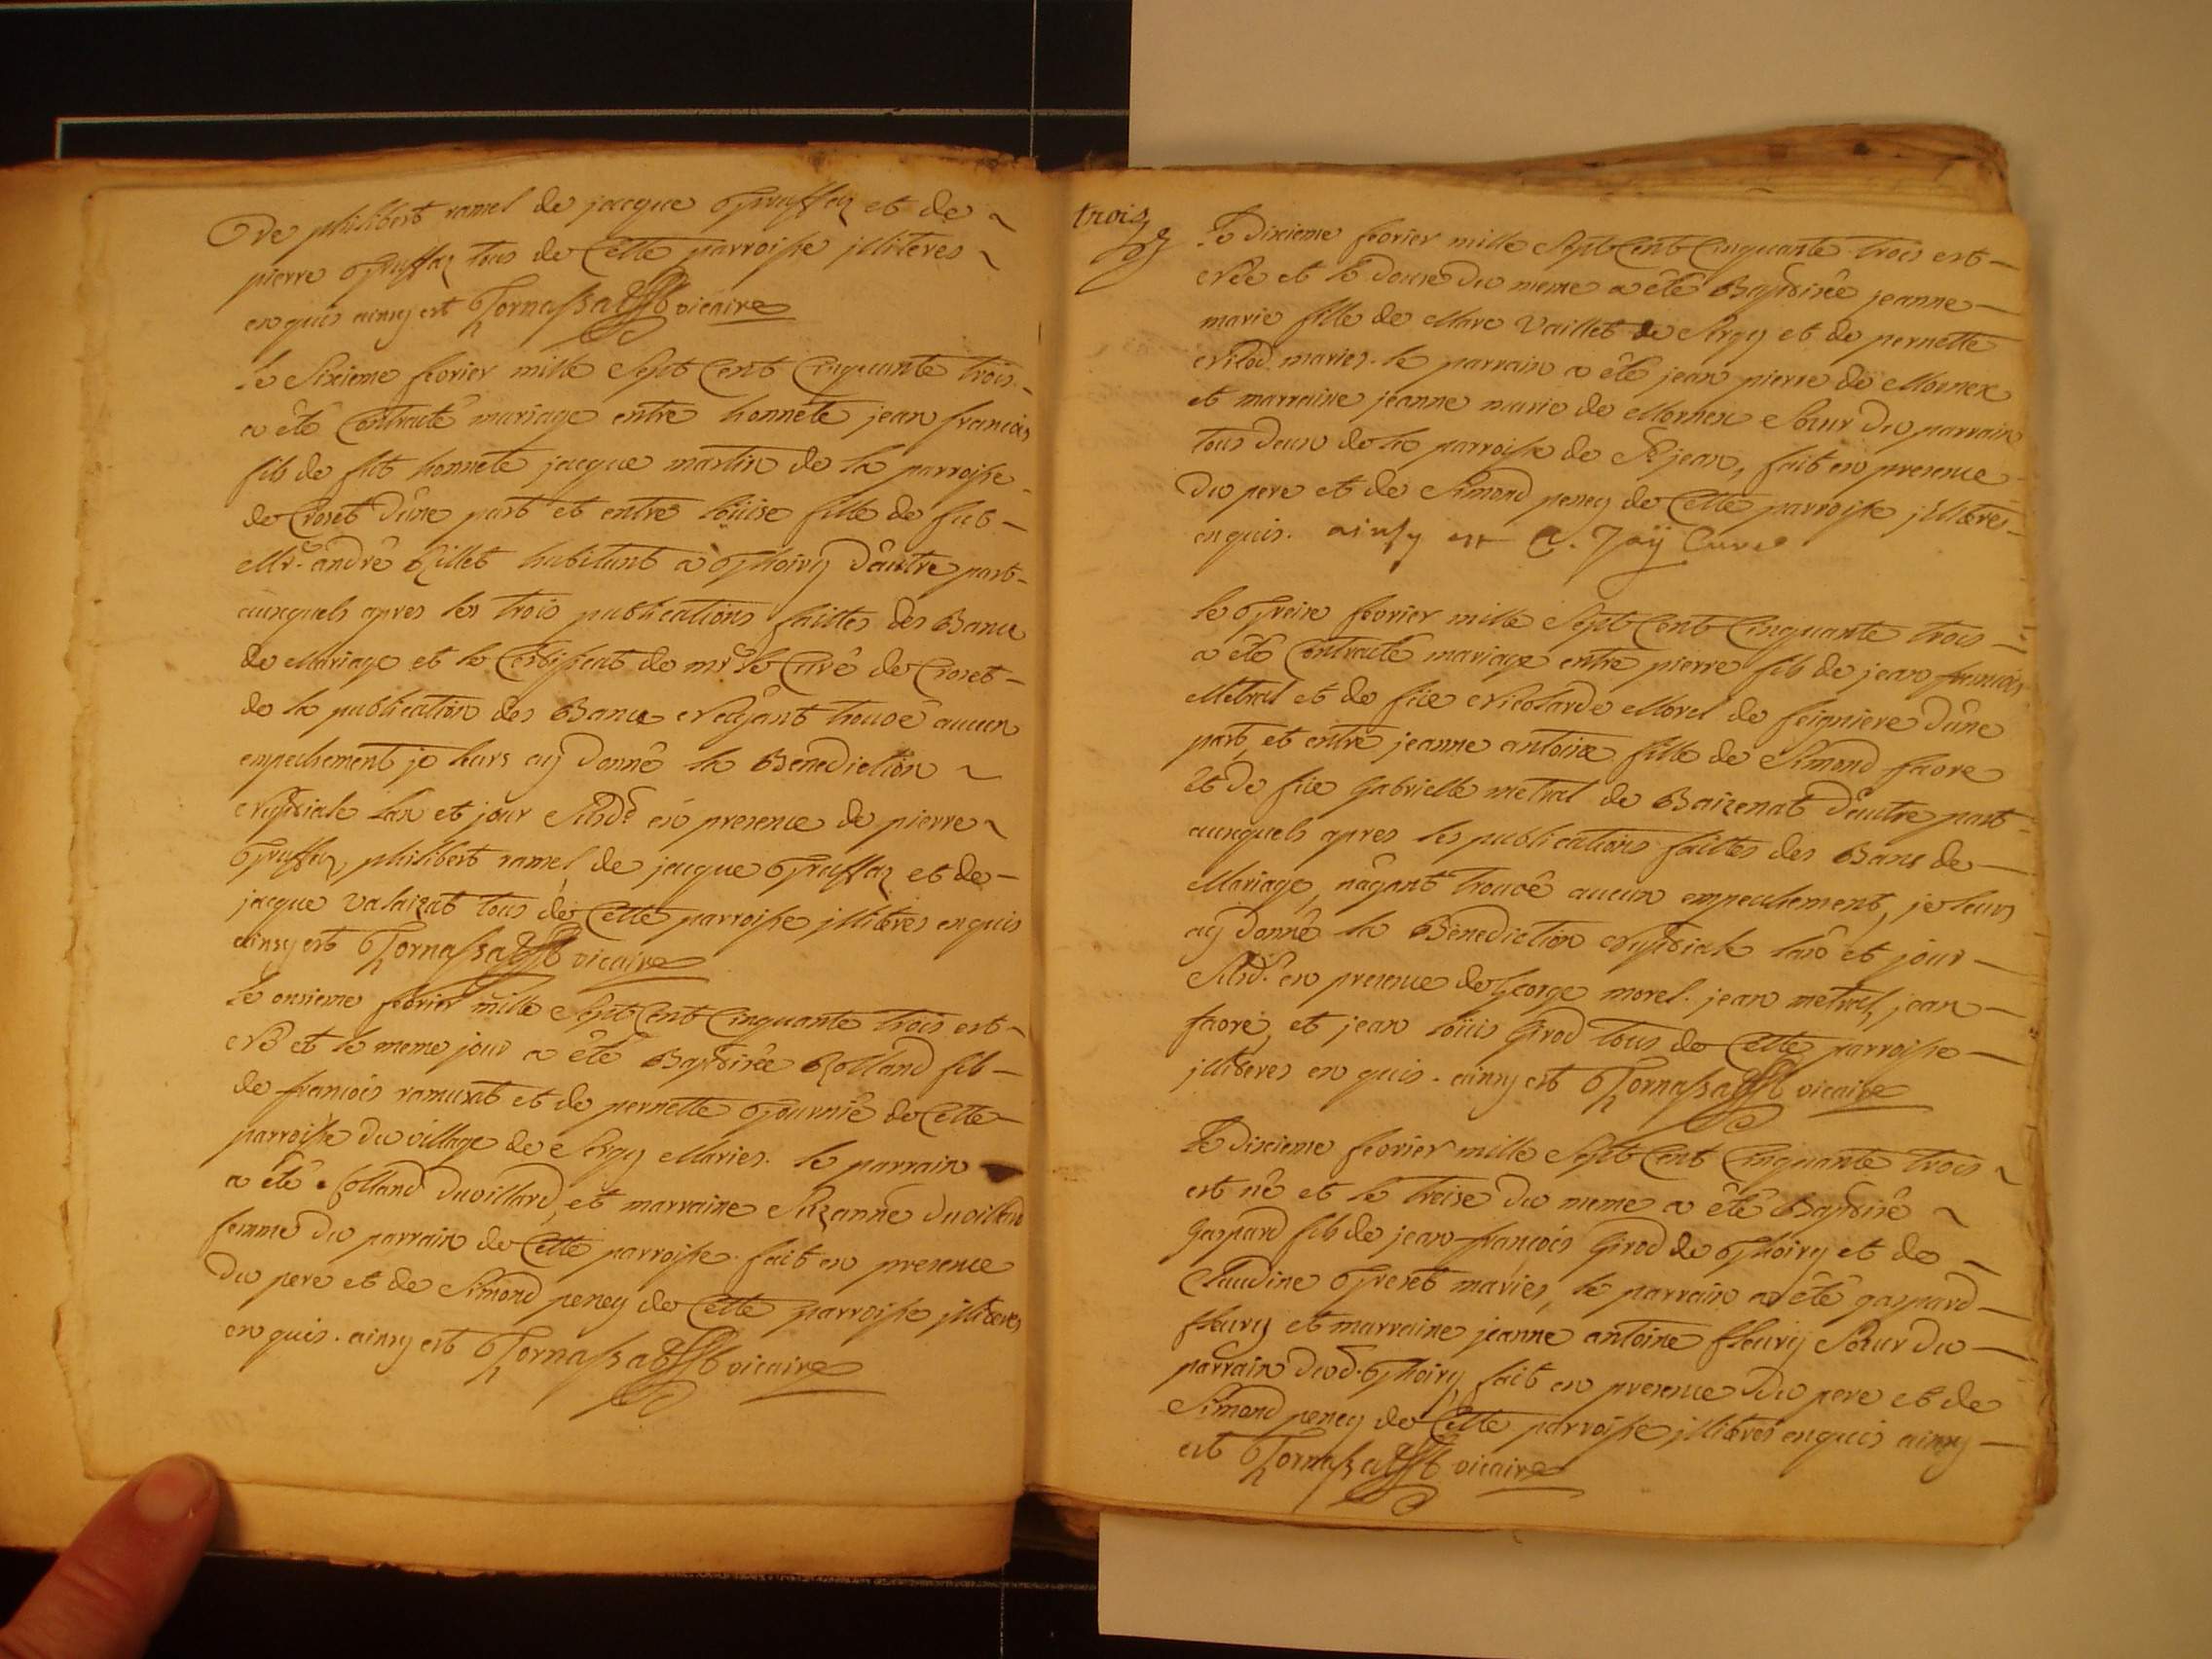 De philibert ramel de jacque Truffaz et de ~
pierre Truffaz tous de Cette parroisse jlliteres ~
enquis ainsy est Tornassat vicaire
le Sixieme fevrier mille Sept Cent Cinquante trois -
a été Contracté mariage entre honnete jean francois
fils de fut honnete jacque martin de la parroisse -
de Crozet d'une part et entre loüise fille de fut -
Mr. andré Rillet habitant a Thoiry d'autre part -
auxquels apres les trois publications faittes des Bans
de Mariage et le Certificat de mr. le Curé de Crozet -
de la publication des Bans N'ayant trouvé aucun
empechement je leurs ay donné la Benediction ~
Nuptiale l'an et jour Susd. en presence de pierre ~
Truffaz, philibert ramel de jacque Truffaz et de -
jacque valaizat tous de Cette parroisse jlliteres enquis
ainsy est Tornassat vicaire
le onzieme fevrier mille Sept Cent Cinquante trois est ~
Né et le meme jour a été Baptisée Rolland fils -
de francois ramuzat et de pernette Tournié de Cette -
parroisse du village de Sergy Maries. le parrain
a été Rolland duvillard, et marraine Suzanne duvillard
femme du parrain de Cette parroisse. fait en presence
du pere et de Simond peney de Cette parroisse jlliteres
enquis. ainsy est Tornassat vicaire
trois
Le Dixieme fevrier mille Sept Cent Cinquante trois est -
Née et le douze du meme a été Baptisée jeanne -
marie fille de Marc Vaillet de Sergy et de pernette
Nicod maries. le parrain a été jean pierre de Mornex
et marraine jeanne marie de Mornex Sœur du parrain
tous deux de la parroisse de St jean, fait en presence -
du pere et de Simond peney de Cette parroisse jlliteres -
enquis. ainsy est C. Jaÿ Curé
le Treize fevrier mille Sept Cent Cinquante trois -
a été Contracté mariage entre pierre fils de jean francois
Metral et de füe Nicolarde Morel de feigniere d'une
part, et entre jeanne antoine fille de Simond favre
Et de füe gabrielle metral de Baizenat d'autre part -
auxquels apres les publications faittes des Bans de -
Mariage, n'ayant trouvé aucun empechement, je leurs
ay donné la Benediction Nuptiale l'an et jour -
Susd. en presence de George morel. jean metral, jean -
favre, et jean loüis Girod tous de Cette parroisse -
jlliteres enquis. ainsy est Tornassat vicaire
Le Dixieme fevrier mille Sept Cent Cinquante trois ~
est né et le treize du meme a été Baptisé ~
gaspard fils de jean francois Girod de Thoiry et de ~
Claudine Trezet maries, le parrain a été gaspard -
fleury et marraine jeanne antoine fleury Sœur du -
parrain dud. Thoiry, fait en presence du pere et de
Simond peney de Cette parroisse jlliteres enquis ainsy -
est Tornassat vicaire